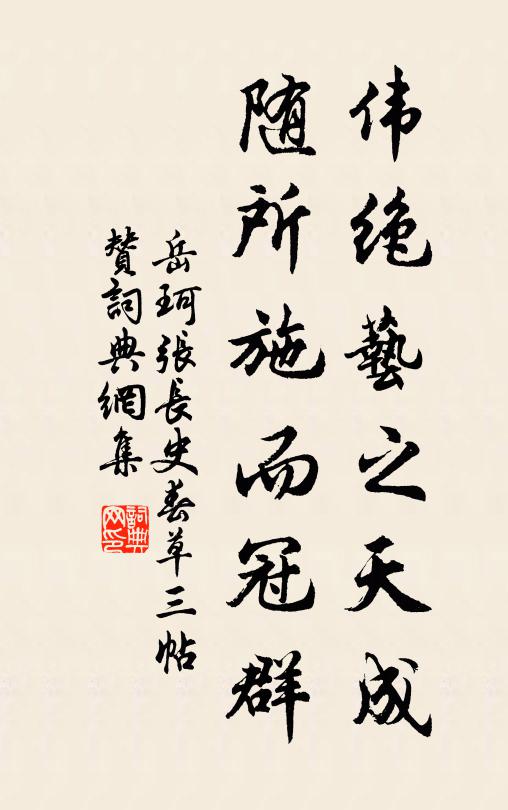 伟绝藝之天成
随所施而冠群
岳珂張長史春草三帖
贊詞典網集
詞典
网印